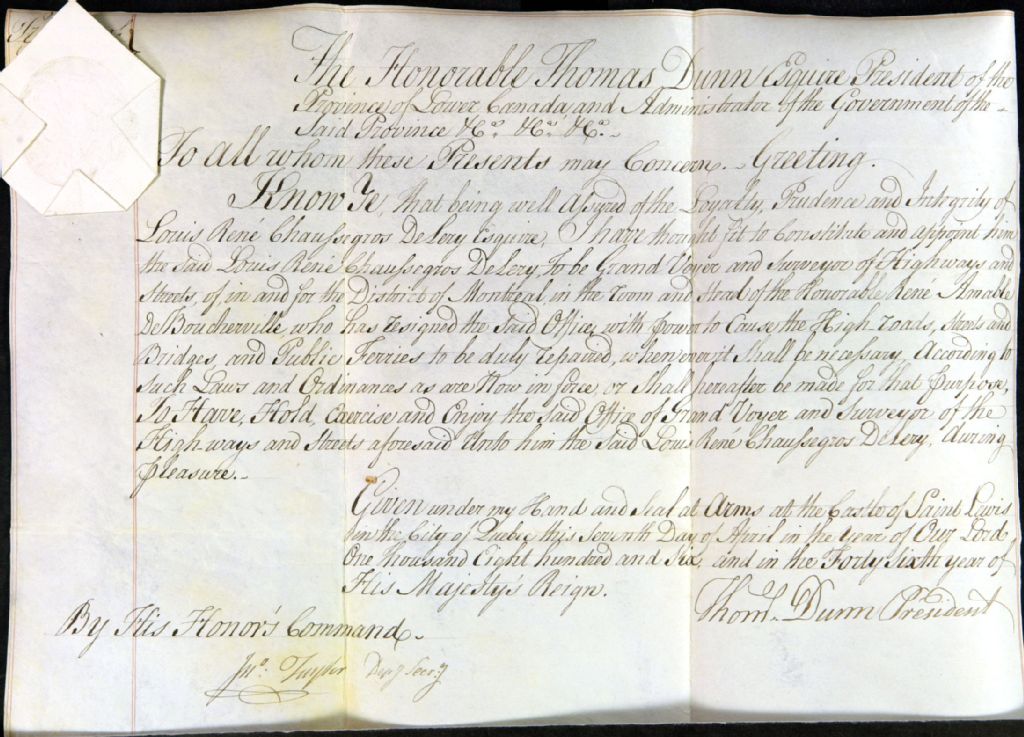 The Honorable Thomas Dunn Esquire President of the
Province of Lower Canada, and Administrator of the Government of the
Said Province &c.a &c.a &c.a
To all whom these Presents may Concern. Greeting.
Know Ye, that being well assured of the Loyalty, Prudence and Integrity of
Louis René Chaussegros DeLery Esquire, I have thought fit to Constitute and appoint him
the said Louis René Chaussegros DeLery, to be Grand Voyer and Surveyor of Highways and
Streets, of, in and for the District of Montreal, in the room and stead of the Honorable René Amable
DeBoucherville who has resigned the Said Office, with power to Cause the High roads, Streets and
Bridges, and Public Ferries to be duly repaired, whenever it Shall be necessary, According to
Such Laws and Ordinances as are Now in force, or Shall hereafter be made for that Purpose,
To Have, Hold, Exercise and Enjoy the Said Office of Grand Voyer and Surveyor of the
Highways and Streets aforesaid Unto him the Said Louis René Chaussegros DeLery, during
pleasure.
Given under my Hand and Seal at Arms at the Castle of Saint Lewis
in the City of Quebec this Seventh Day of April in the year of Our Lord
One thousand Eight hundred and Six, and in the Forty Sixth year of
His Majesty's Reign.
Thos. Dunn President
By His Honor's Command.
Jno. Taylor Depy Secry